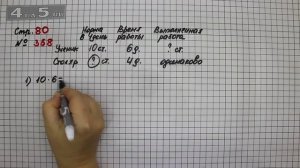 Стр. 80
№ 368
Норма в 1 день
Время работы
Выполненная работа
Ученик 10 ст. 6 д. ? ст.
Столяр ? ст. 4 д. одинаково
1) 10 · 6